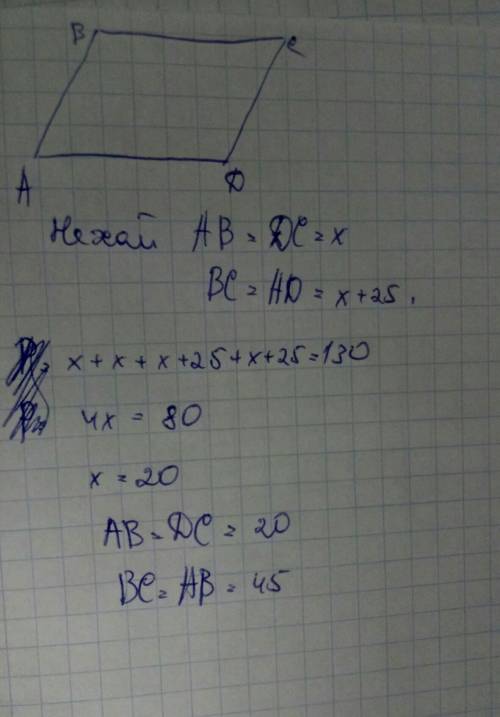 B C
A D
Нехай AB = DC = x
BC = AD = x + 25.
x + x + x + 25 + x + 25 = 130
4x = 80
x = 20
AB = DC = 20
BC = AB = 45